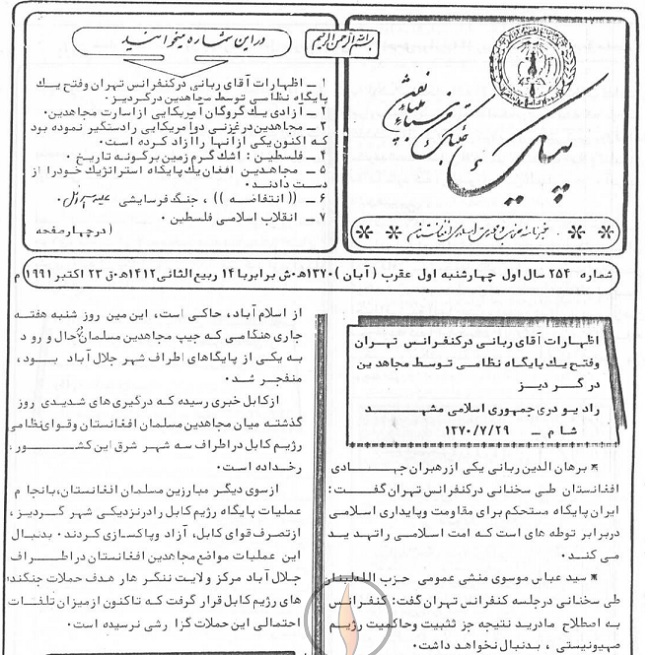 بسم الله الرحمن الرحیم
در این شماره میخوانید
۱ ــ اظهارات آقای ربانی درکنفرانس تهران وفتح یـك
پایگاه نظامـی توسط مجاهدین درگردیـز ۰
۲ ــ آزادی یـك گروگان آمریکایی ازاسارت مجاهدین۰
۳ ــ مجاهدین درغزنـی دوآ مریکایی رادستگیر نموده بود
کـه اکنون یکی ازآنهـا راآزاد کرده است۰
۴ ــ فلسطیـن : اشك گـرم زمین برگـونـه تاریـخ ۰
۵ ــ مجاهـدیـن افغان یـك پایگاه استراتژیك خـودرا از
دسـت دادنـد ۰
۶ ــ (( انتفاضـه )) ، جنگ فرسایشی
۷ ــ انقلاب اسلامی فلسطین ۰
(درچهارصفحه
پیام
شماره ۲۵۴ سال اول چهارشنبه اول عقرب ( آبان ) ۱۳۷۰ه‍۰ش برابربا ۱۴ ربیع الثانی ۱۴۱۲ه‍۰ق ۲۳ اکتبر ۱۹۹۱م
اظهـارات آقای ربانـی درکنفـرانـس تهـران
وفتـح یـك پایگـاه نظامـی تـوسـط مجاهد ین
در گـــر دیـز
راد یـو دری جمهـوری اسلامـی مشهـــد
شـا م ــ ۱۳۷۰/۷/۲۹
* برهان الدین ربانی یکی ازرهبران جهـــادی
افغانستان طـی سخنانـی درکنفرانس تهـران گفـــت :
ایران پایگاه مستحکم برای مقاومت وپایداری اسلامـی
دربرابر توطه های است کـه امت اسلامـی راتهـد یـد
می کنـد۰
* سیـد عباس موسوی منشی عمومی حزب اللـه لبنان
طی سخنانی درجلسه کنفرانس تهران گفت: کنفرانـس
بـه اصطلاح مادریـد نتیجه جز تثبیت وحاکمیت رژیـم
صهیونیستی ، بدنبال نخواهد داشت۰
از اسلام آباد، حاکی است، این مین روز شنبه هفتـه
جاری هنگامـی کـه جیپ مجاهدین مسلمان درحال و رو د
بـه یکـی از پایگاهای اطراف شهـر جلال آباد بـــود ،
منفجـر شـد۰
ازکابل خبری رسیده کـه درگیری های شدیـدی روز
گذشتـه میان مجاهدین مسلمان افغانستان وقـوای‌نظامی
رژیـم کابل دراطراف سـه شهـر شرق این کشـــــور ،
رخـداده است۰
ازسوی دیگـر مبارزین مسلمان افغانستان، باانجا م
عملیات پایگاه رژیم کابل رادرنزدیکـی شهـر گـردیـز ،
ازتصرف قوای کابل، آزاد وپاکسـازی کردنـد۰ بدنبـال
این عملیات مواضع مجاهدین افغانستان دراطـــراف
جلال آباد مرکز ولایت ننگـر هار هـدف حملات جنگنده
های رژیم کابل قرار گرفت کـه تاکنون ازمیزان تلفـات
احتمالی این حملات گـزا رشی نرسیده است۰